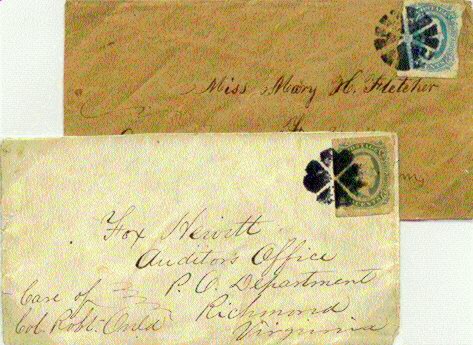 Miss Mary H. Fletcher
Fox Hewitt
Auditors Office
P. O. Department
Richmond
Virginia
Care of
Col. Robt. Ould